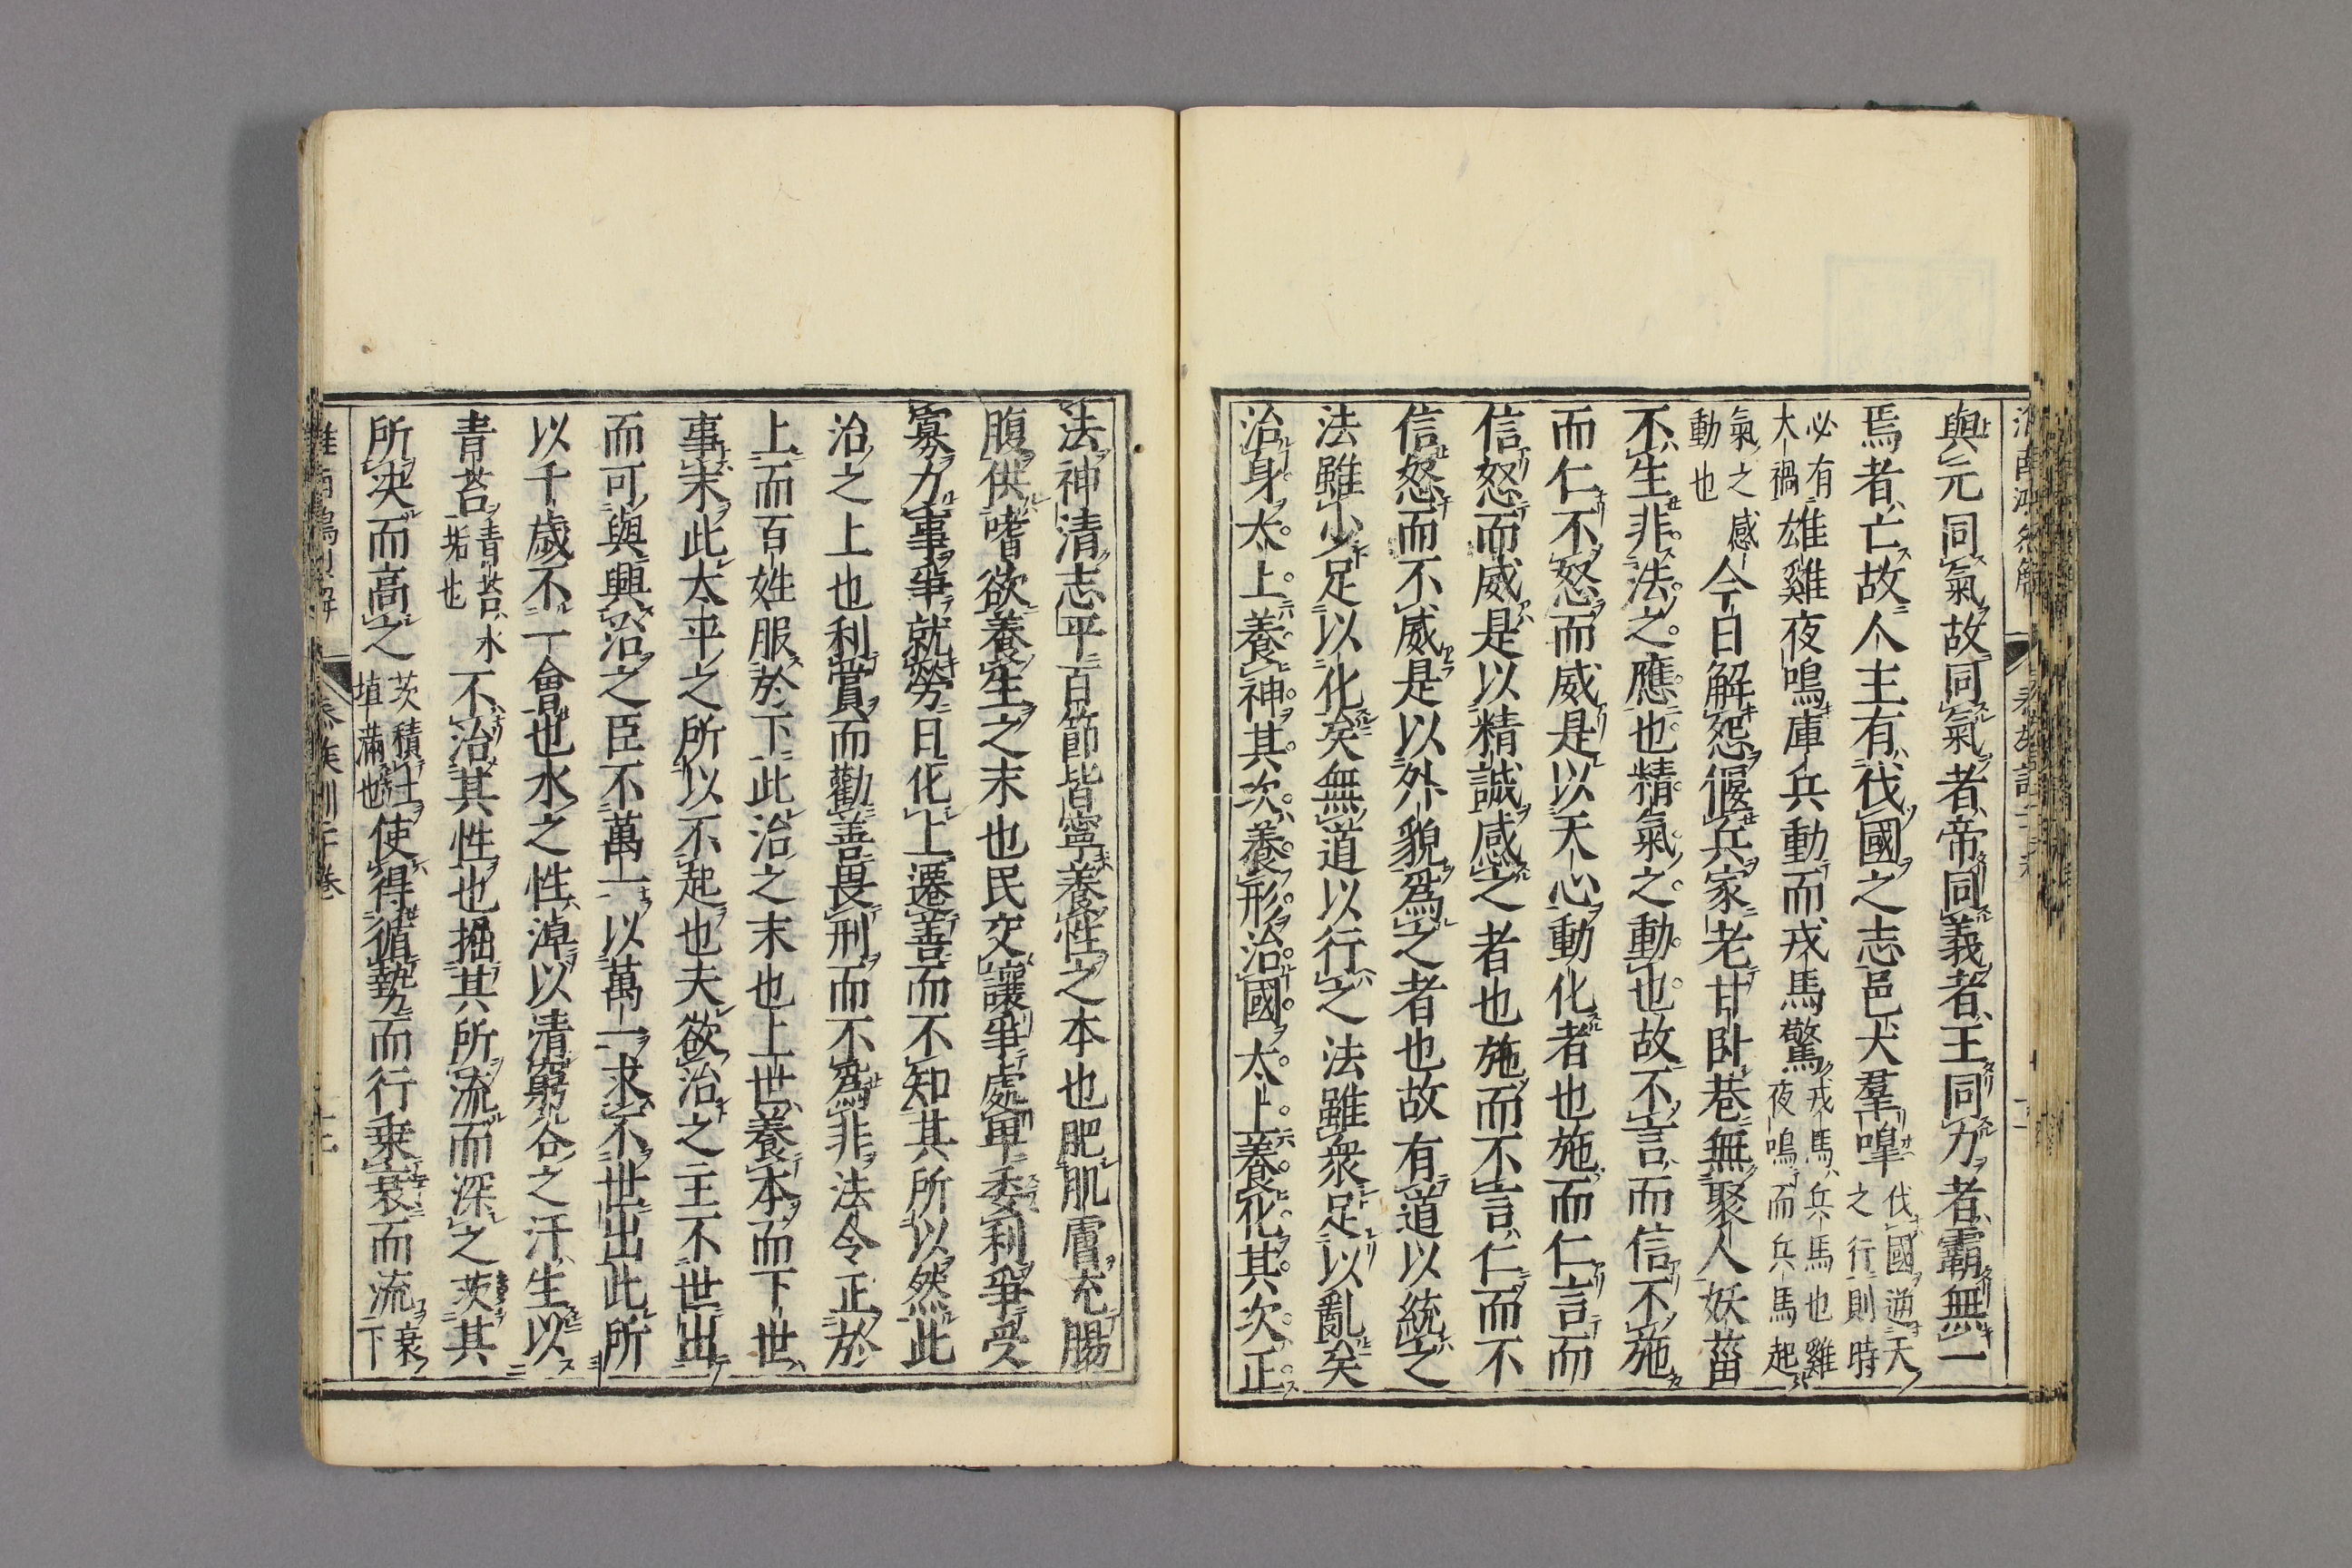 與元同氣故同氣者帝同義者王同力者霸無一
焉者亡故人主有伐國之志邑犬羣嘷伐國逆天之行則時
必有大禍雄雞夜鳴庫兵動而戎馬驚戎馬兵馬也雞夜鳴而兵馬起
氣之感動也今日解怨偃兵家老甘卧巷無聚人妖菑
不生非法之應也精氣之動也故不言而信不施
而仁不怒而威是以天心動化者也施而仁言而
信怒而威是以精誠感之者也施而不言仁而不
信怒而不威是以外貌為之者也故有道以統之
法雖少足以化矣無道以行之法雖衆足以亂矣
治身太上養神其次養形治國太上養化其次正
法神清志平百節皆寧養性之本也肥肌膚充腸
腹供嗜欲養生之末也民交讓爭處卑委利爭受
寡力事爭就勞日化上遷善而不知其所以然此
治之上也利賞而勸善畏刑而不為非法令正於
上而百姓服於下此治之末也上世養本而下世
事末此太平之所以不起也夫欲治之主不世出
而可與興治之臣不萬一以萬一求不世出此所
以千歲不一會也水之性淖以清窮谷之汙生以
青苔青苔水垢也不治其性也掘其所流而深之茨其
所決而高之茨積土填滿也使得循勢而行乗衰而流衰下
泰族訓二十卷